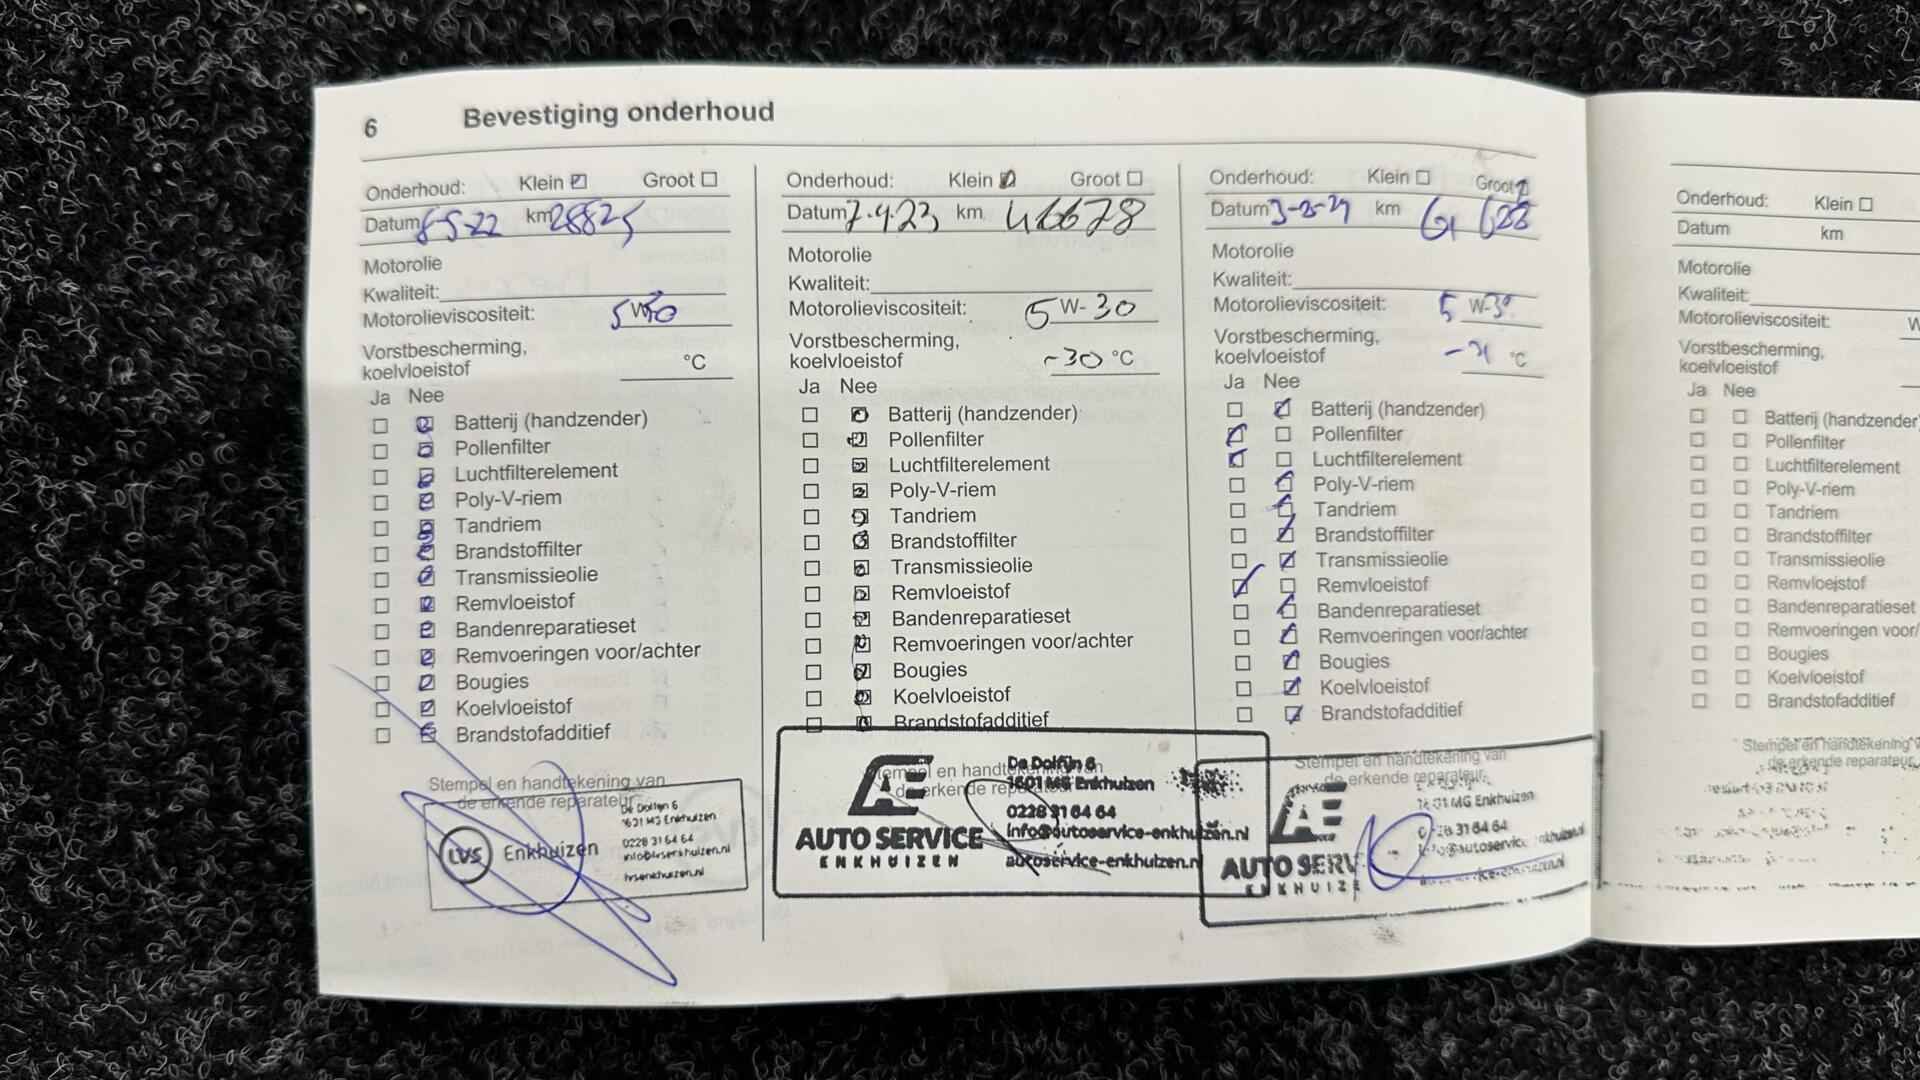 6 Bevestiging onderhoud
Onderhoud: Klein Groot
Datum 6-5-22 km 28825
Motorolie
Kwaliteit:
Motorolieviscositeit: 5 W-30
Vorstbescherming,
koelvloeistof °C
Ja Nee
Batterij (handzender)
Pollenfilter
Luchtfilterelement
Poly-V-riem
Tandriem
Brandstoffilter
Transmissieolie
Remvloeistof
Bandenreparatieset
Remvoeringen voor/achter
Bougies
Koelvloeistof
Brandstofadditief
Stempel en handtekening van
de erkende reparateur
LVS Enkhuizen
De Dolfijn 6
1601 MG Enkhuizen
0228 31 64 64
Onderhoud: Klein Groot
Datum 7.4.23 km 46678
Motorolie
Kwaliteit:
Motorolieviscositeit: 5 W-30
Vorstbescherming,
koelvloeistof -30 °C
Ja Nee
Batterij (handzender)
Pollenfilter
Luchtfilterelement
Poly-V-riem
Tandriem
Brandstoffilter
Transmissieolie
Remvloeistof
Bandenreparatieset
Remvoeringen voor/achter
Bougies
Koelvloeistof
Brandstofadditief
Stempel en handtekening van
de erkende reparateur
AE
AUTO SERVICE
ENKHUIZEN
De Dolfijn 6
1601 MG Enkhuizen
0228 31 64 64
info@autoservice-enkhuizen.nl
autoservice-enkhuizen.nl
Onderhoud: Klein Groot
Datum km
Motorolie
Kwaliteit:
Motorolieviscositeit: 5 W-30
Vorstbescherming,
koelvloeistof °C
Ja Nee
Batterij (handzender)
Pollenfilter
Luchtfilterelement
Poly-V-riem
Tandriem
Brandstoffilter
Transmissieolie
Remvloeistof
Bandenreparatieset
Remvoeringen voor/achter
Bougies
Koelvloeistof
Brandstofadditief
Stempel en handtekening van
de erkende reparateur
AE
AUTO SERV
ENKHUIZE
MG Enkhuizen
31 64 64
Onderhoud: Klein
Datum km
Motorolie
Kwaliteit:
Motorolieviscositeit: W
Vorstbescherming,
koelvloeistof
Ja Nee
Batterij (handzender
Pollenfilter
Luchtfilterelement
Poly-V-riem
Tandriem
Brandstoffilter
Transmissieolie
Remvloeistof
Bandenreparatieset
Remvoeringen voor/
Bougies
Koelvloeistof
Brandstofadditief
Stempel en handtekening v
de erkende reparateur